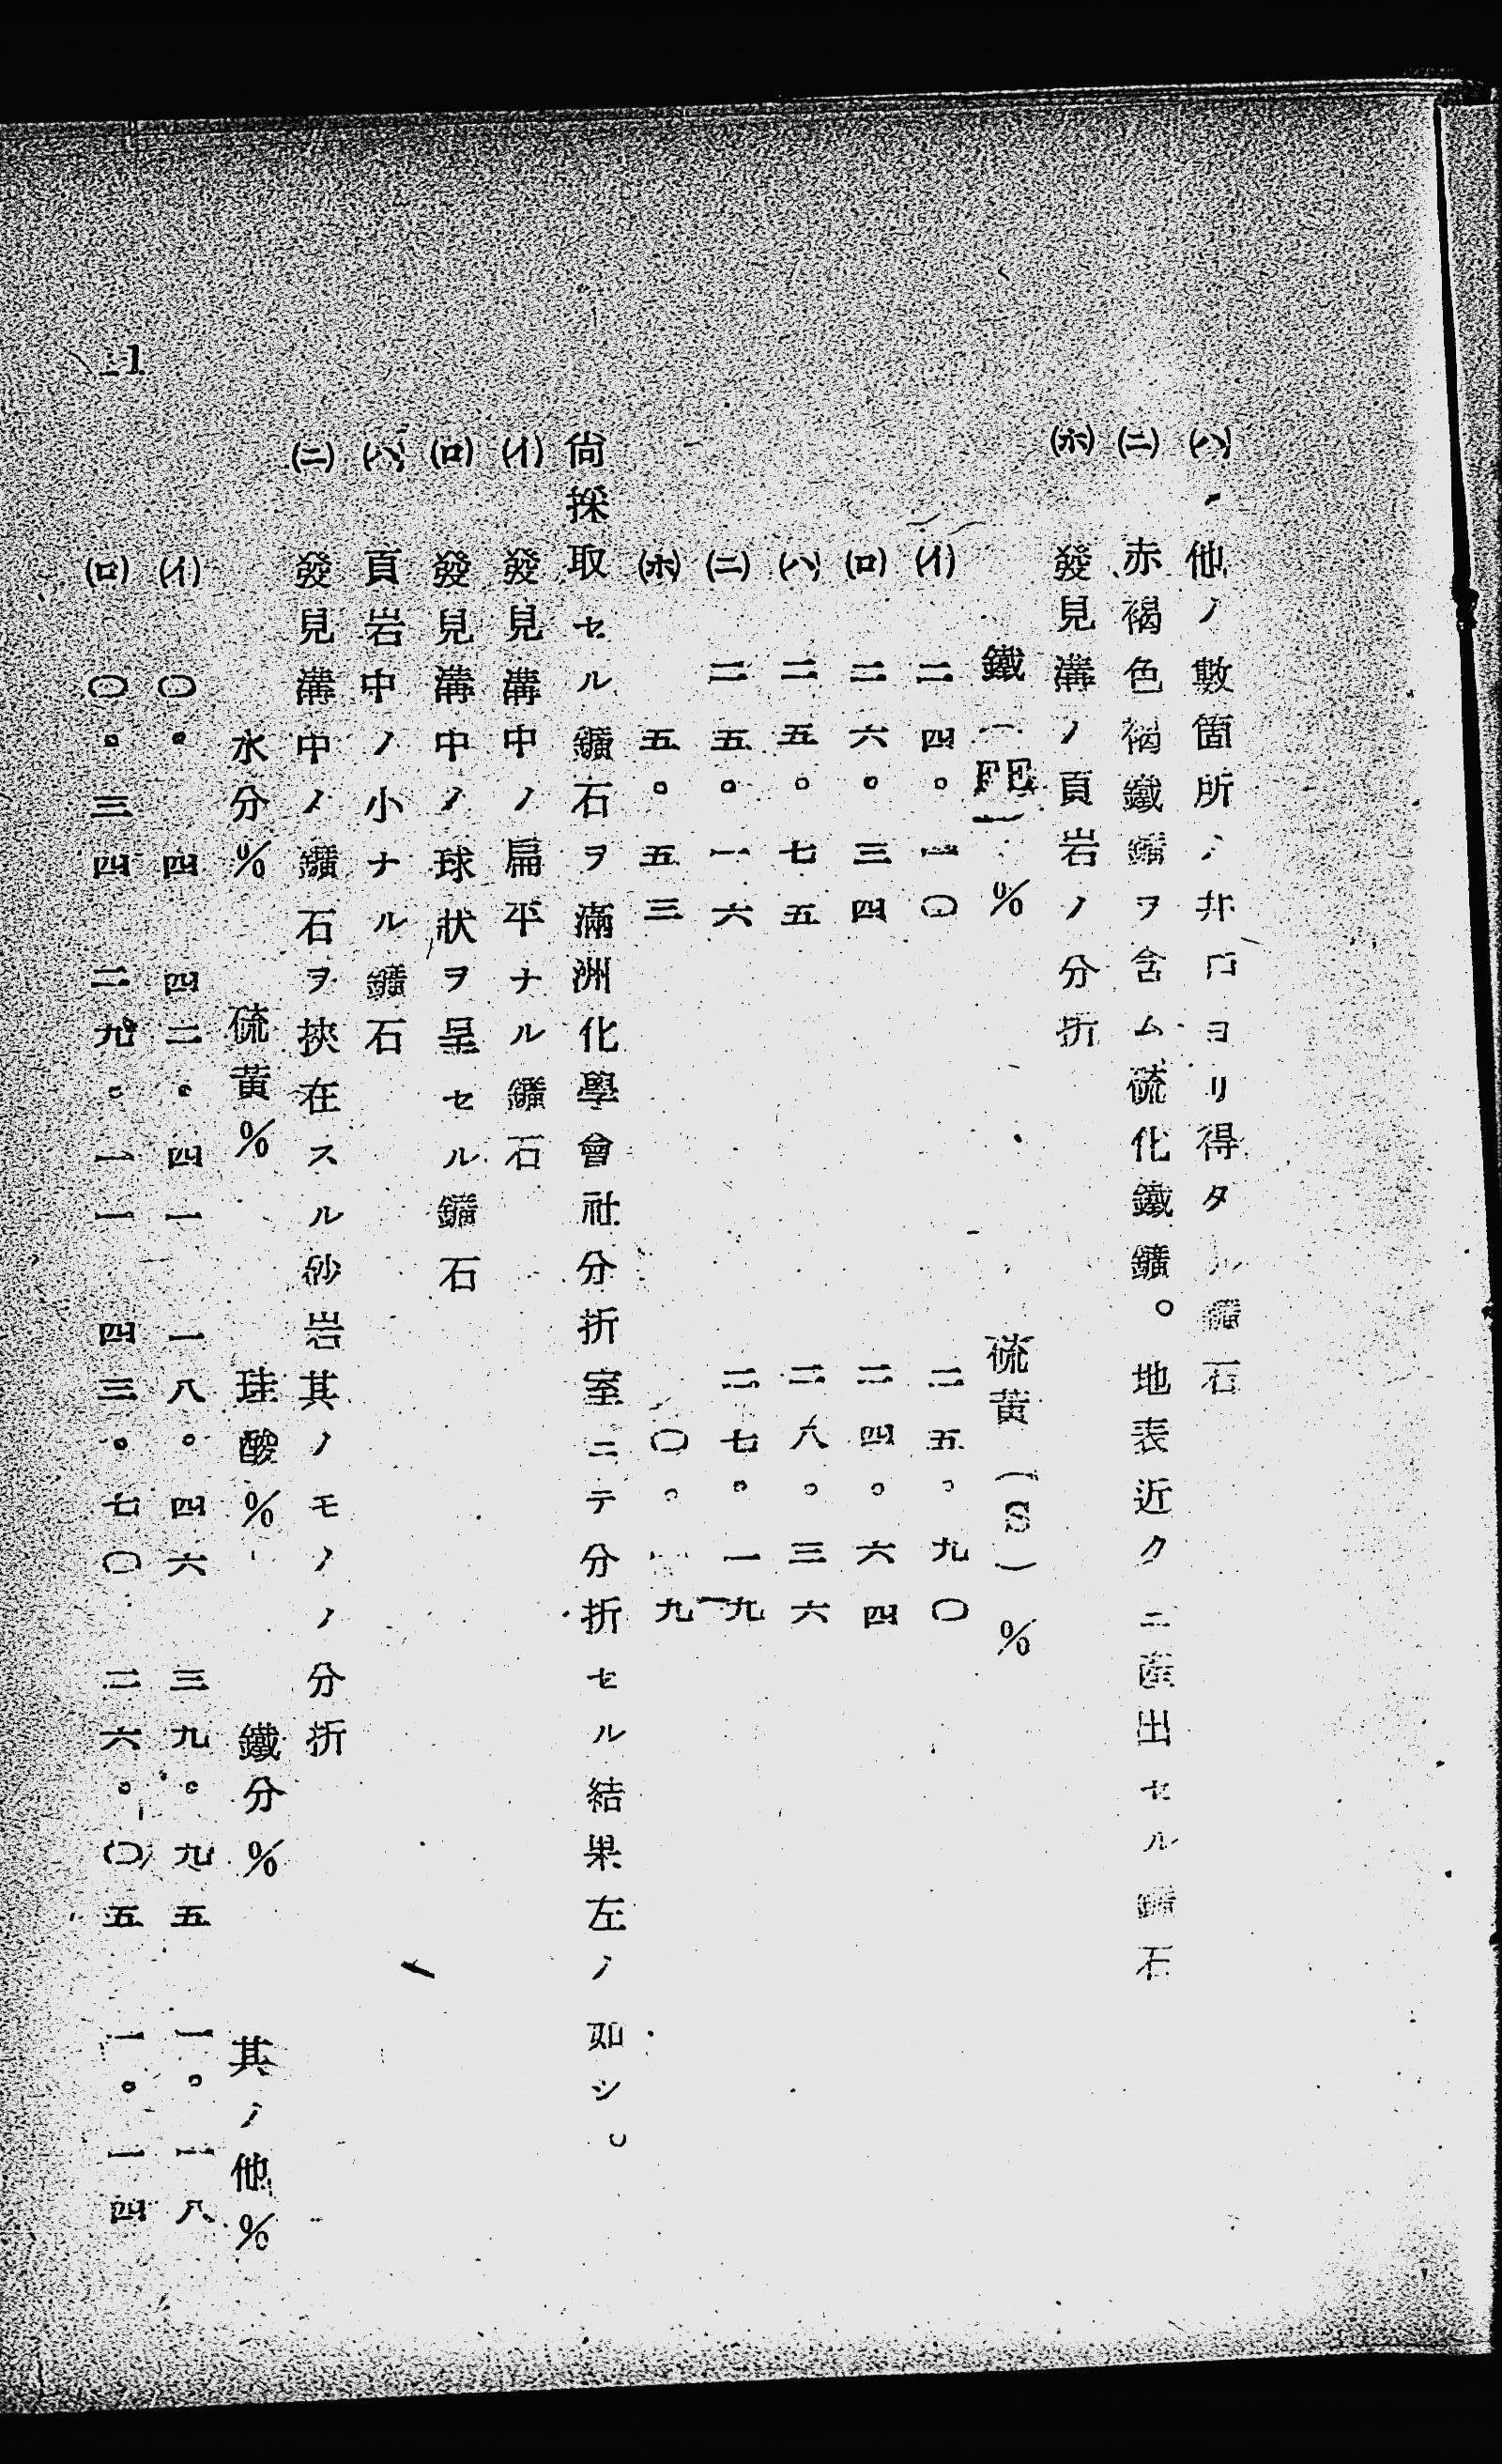 (ハ) 他ノ數箇所ノ井口ヨリ得タル鑛石
(ニ) 赤褐色褐鐵鑛ヲ含ム硫化鐵鑛。地表近クニ産出セル鑛石
(ホ) 發見溝ノ頁岩ノ分折
鐵(FE)% 硫黄(S)%
(イ) 二四。一〇 二五。九〇
(ロ) 二六。三四 二四。六四
(ハ) 二五。七五 二八。三六
(ニ) 二五。一六 二七。一九
(ホ) 五。五三 〇。 九
尙採取セル鑛石ヲ滿洲化學會社分折室ニテ分折セル結果左ノ如シ。
(イ) 發見溝中ノ扁平ナル鑛石
(ロ) 發見溝中ノ球狀ヲ呈セル鑛石
(ハ) 頁岩中ノ小ナル鑛石
(ニ) 發見溝中ノ鑛石ヲ挾在スル砂岩其ノモノノ分折
水分% 硫黄% 珪酸% 鐵分% 其ノ他%
(イ) 〇。四四 二。四一 一八。四六 三九。九五 一。一八
(ロ) 〇。三四 二九。一一 四三。七〇 二六。〇五 一。一四